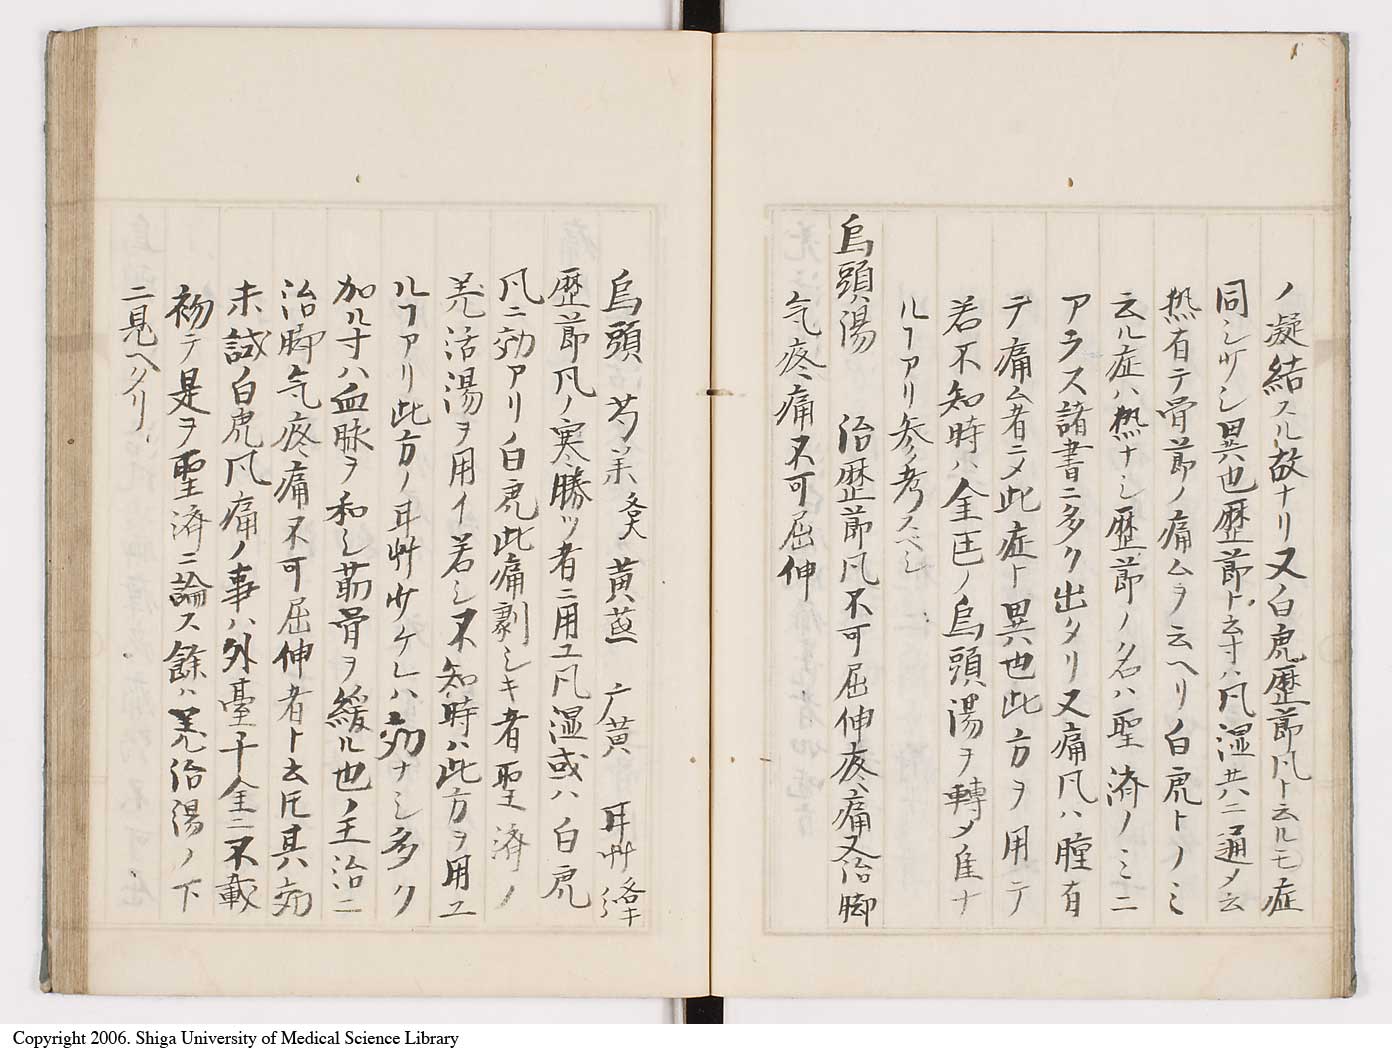 ノ凝結スル故ナリ又白虎歴節凡ト云ルモ症
同シサシ異也歴節ト云寸ハ凡湿共ニ通メ云
熱有テ骨節ノ痛ムヲ云ヘリ白虎トノミ
云ル症ハ熱ナシ歴節ノ名ハ聖済ノミニ
アラス諸書ニ多ク出タリ又痛凡ハ腫有
テ痛ム者ニメ此症ト異也此方ヲ用テ
若不知時ハ金匱ノ烏頭湯ヲ轉メ隹ナ
ルヿアリ参考スベシ
烏頭湯 治歴節凡不可屈伸疼痛又治脚
气疼痛不可屈伸
烏頭 芍薬 各大 黄芪 广黄 甘艸
歴節凡ノ寒勝ツ者ニ用ユ凡湿或ハ白虎
凡ニ効アリ白虎此痛劇シキ者聖済ノ
羌活湯ヲ用イ若シ不知時ハ此方ヲ用ユ
ルヿアリ此方ノ甘艸サケレハ効ナシ多ク
加ル寸ハ血脉ヲ和シ筋骨ヲ緩ル也ノ主治ニ
治脚气疼痛不可屈伸者ト云𪜈其効
未試白虎凡痛ノ事ハ外臺千金ニ不載
初テ是ヲ聖済ニ論ス餘ハ羌活湯ノ下
ニ見ヘタリ
Copyright 2006. Shiga University of Medical Science Library